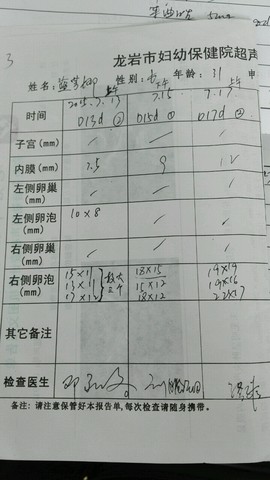 3
龙岩市妇幼保健院超声
姓名: 性别:女 年龄:31 申
时间 2015.7.13 上午 7.15 7.17 上午
D13d ② D15d ① D17d ①
子宫(mm) / / /
内膜(mm) 7.5 9 12
左侧卵巢(mm) / / /
左侧卵泡(mm) 10×8 / /
右侧卵巢(mm) / / /
右侧卵泡(mm) 15×11 较大 18×15 19×19
13×11 3个 15×12 19×16
17×12 18×12 22×17
其它备注
检查医生
备注: 请注意保管好本报告单,每次检查请随身携带。